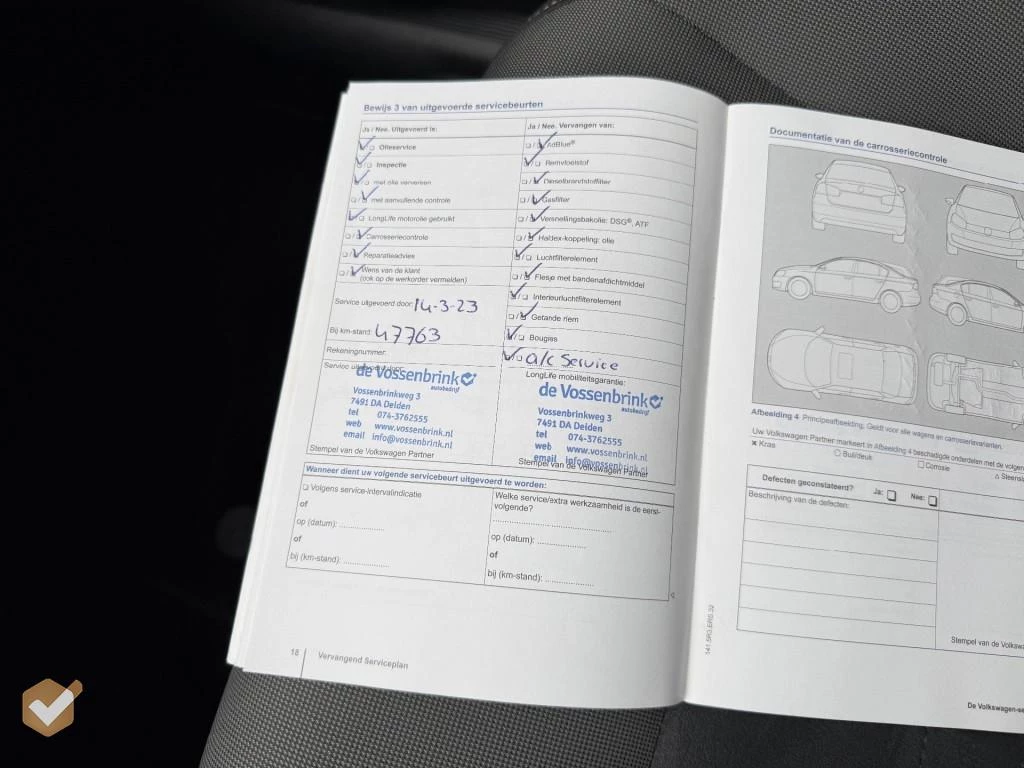 Bewijs 3 van uitgevoerde servicebeurten
Ja / Nee. Uitgevoerd is:
Olieservice
Inspectie
met olie verversen
met aanvullende controle
LongLife motorolie gebruikt
Carrosseriecontrole
Reparatieadvies
Wens van de klant
(ook op de werkorder vermelden)
Service uitgevoerd door: 14-3-23
Bij km-stand: 47763
Rekeningnummer:
Service uitgevoerd door:
de Vossenbrink
autobedrijf
Vossenbrinkweg 3
7491 DA Delden
tel 074-3762555
web www.vossenbrink.nl
email info@vossenbrink.nl
Stempel van de Volkswagen Partner
Ja / Nee. Vervangen van:
AdBlue®
Remvloeistof
Dieselbrandstoffilter
Gasfilter
Versnellingsbakolie: DSG®, ATF
Haldex-koppeling: olie
Luchtfilterelement
Flesje met bandenafdichtmiddel
Interieurluchtfilterelement
Getande riem
Bougies
a/c Service
LongLife mobiliteitsgarantie:
de Vossenbrink
autobedrijf
Vossenbrinkweg 3
7491 DA Delden
tel 074-3762555
web www.vossenbrink.nl
email info@vossenbrink.nl
Stempel van de Volkswagen Partner
Wanneer dient uw volgende servicebeurt uitgevoerd te worden:
Volgens service-intervalindicatie
of
op (datum): ..................
of
bij (km-stand): ..................
Welke service/extra werkzaamheid is de eerst-
volgende?
op (datum): ...................
of
bij (km-stand): ...................
18 Vervangend Serviceplan
Documentatie van de carrosseriecontrole
Afbeelding 4 Principeafbeelding. Geldt voor alle wagens en carrosserievarianten.
Uw Volkswagen Partner markeert in Afbeelding 4 beschadigde onderdelen met de volgen
× Kras
Buil/deuk
Corrosie
Defecten geconstateerd? Ja: Nee:
Beschrijving van de defecten:
Stempel van de Volksw
141.5R3.ERS.32
De Volkswagen-se